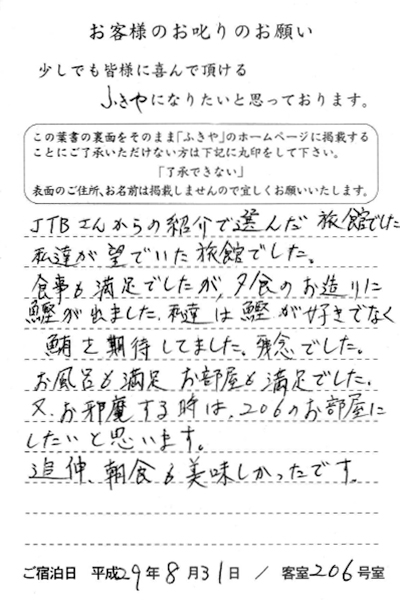 お客様のお叱りのお願い
少しでも皆様に喜んで頂ける
ふきやになりたいと思っております。
この葉書の裏面をそのまま「ふきや」のホームページに掲載する
ことにご了承いただけない方は下記に丸印をして下さい。
「了承できない」
表面のご住所、お名前は掲載しませんので宜しくお願いいたします。
JTBさんからの紹介で選んだ旅館でした
私達が望でいた旅館でした。
食事も満足でしたが、夕食のお造りに
鰹が出ました。私達は鰹が好きでなく
鮪を期待してました。残念でした。
お風呂も満足 お部屋も満足でした。
又、お邪魔する時は、206のお部屋に
したいと思います。
追伸、朝食も美味しかったです。
ご宿泊日 平成29年8月31日 / 客室206号室